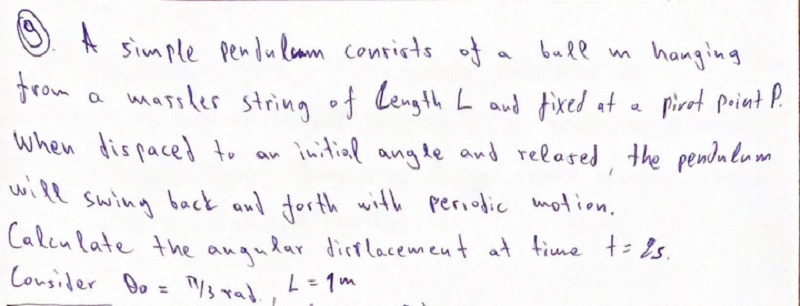 9. A simple pendulum consists of a ball m hanging
from a massles string of length L and fixed at a pivot point P.
When dispaced to an initial angle and relased, the pendulum
will swing back and forth with periodic motion.
Calculate the angular dirrlacement at time t = 2s.
Consider θ0 = π/3 rad., L = 1m